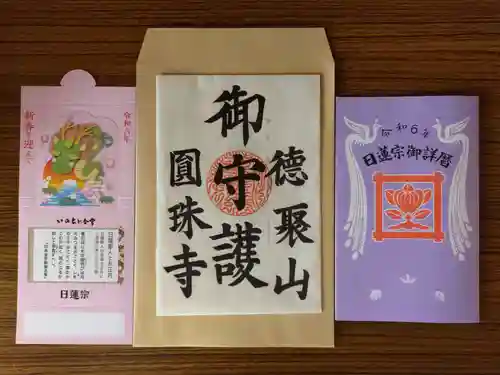 令和六年
新春を迎えて
いのちに合掌
日蓮宗
德聚山
御守護
圓珠寺
令和6年
日蓮宗御詳暦